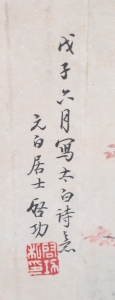 戊子六月寫太白詩意
元白居士啓功